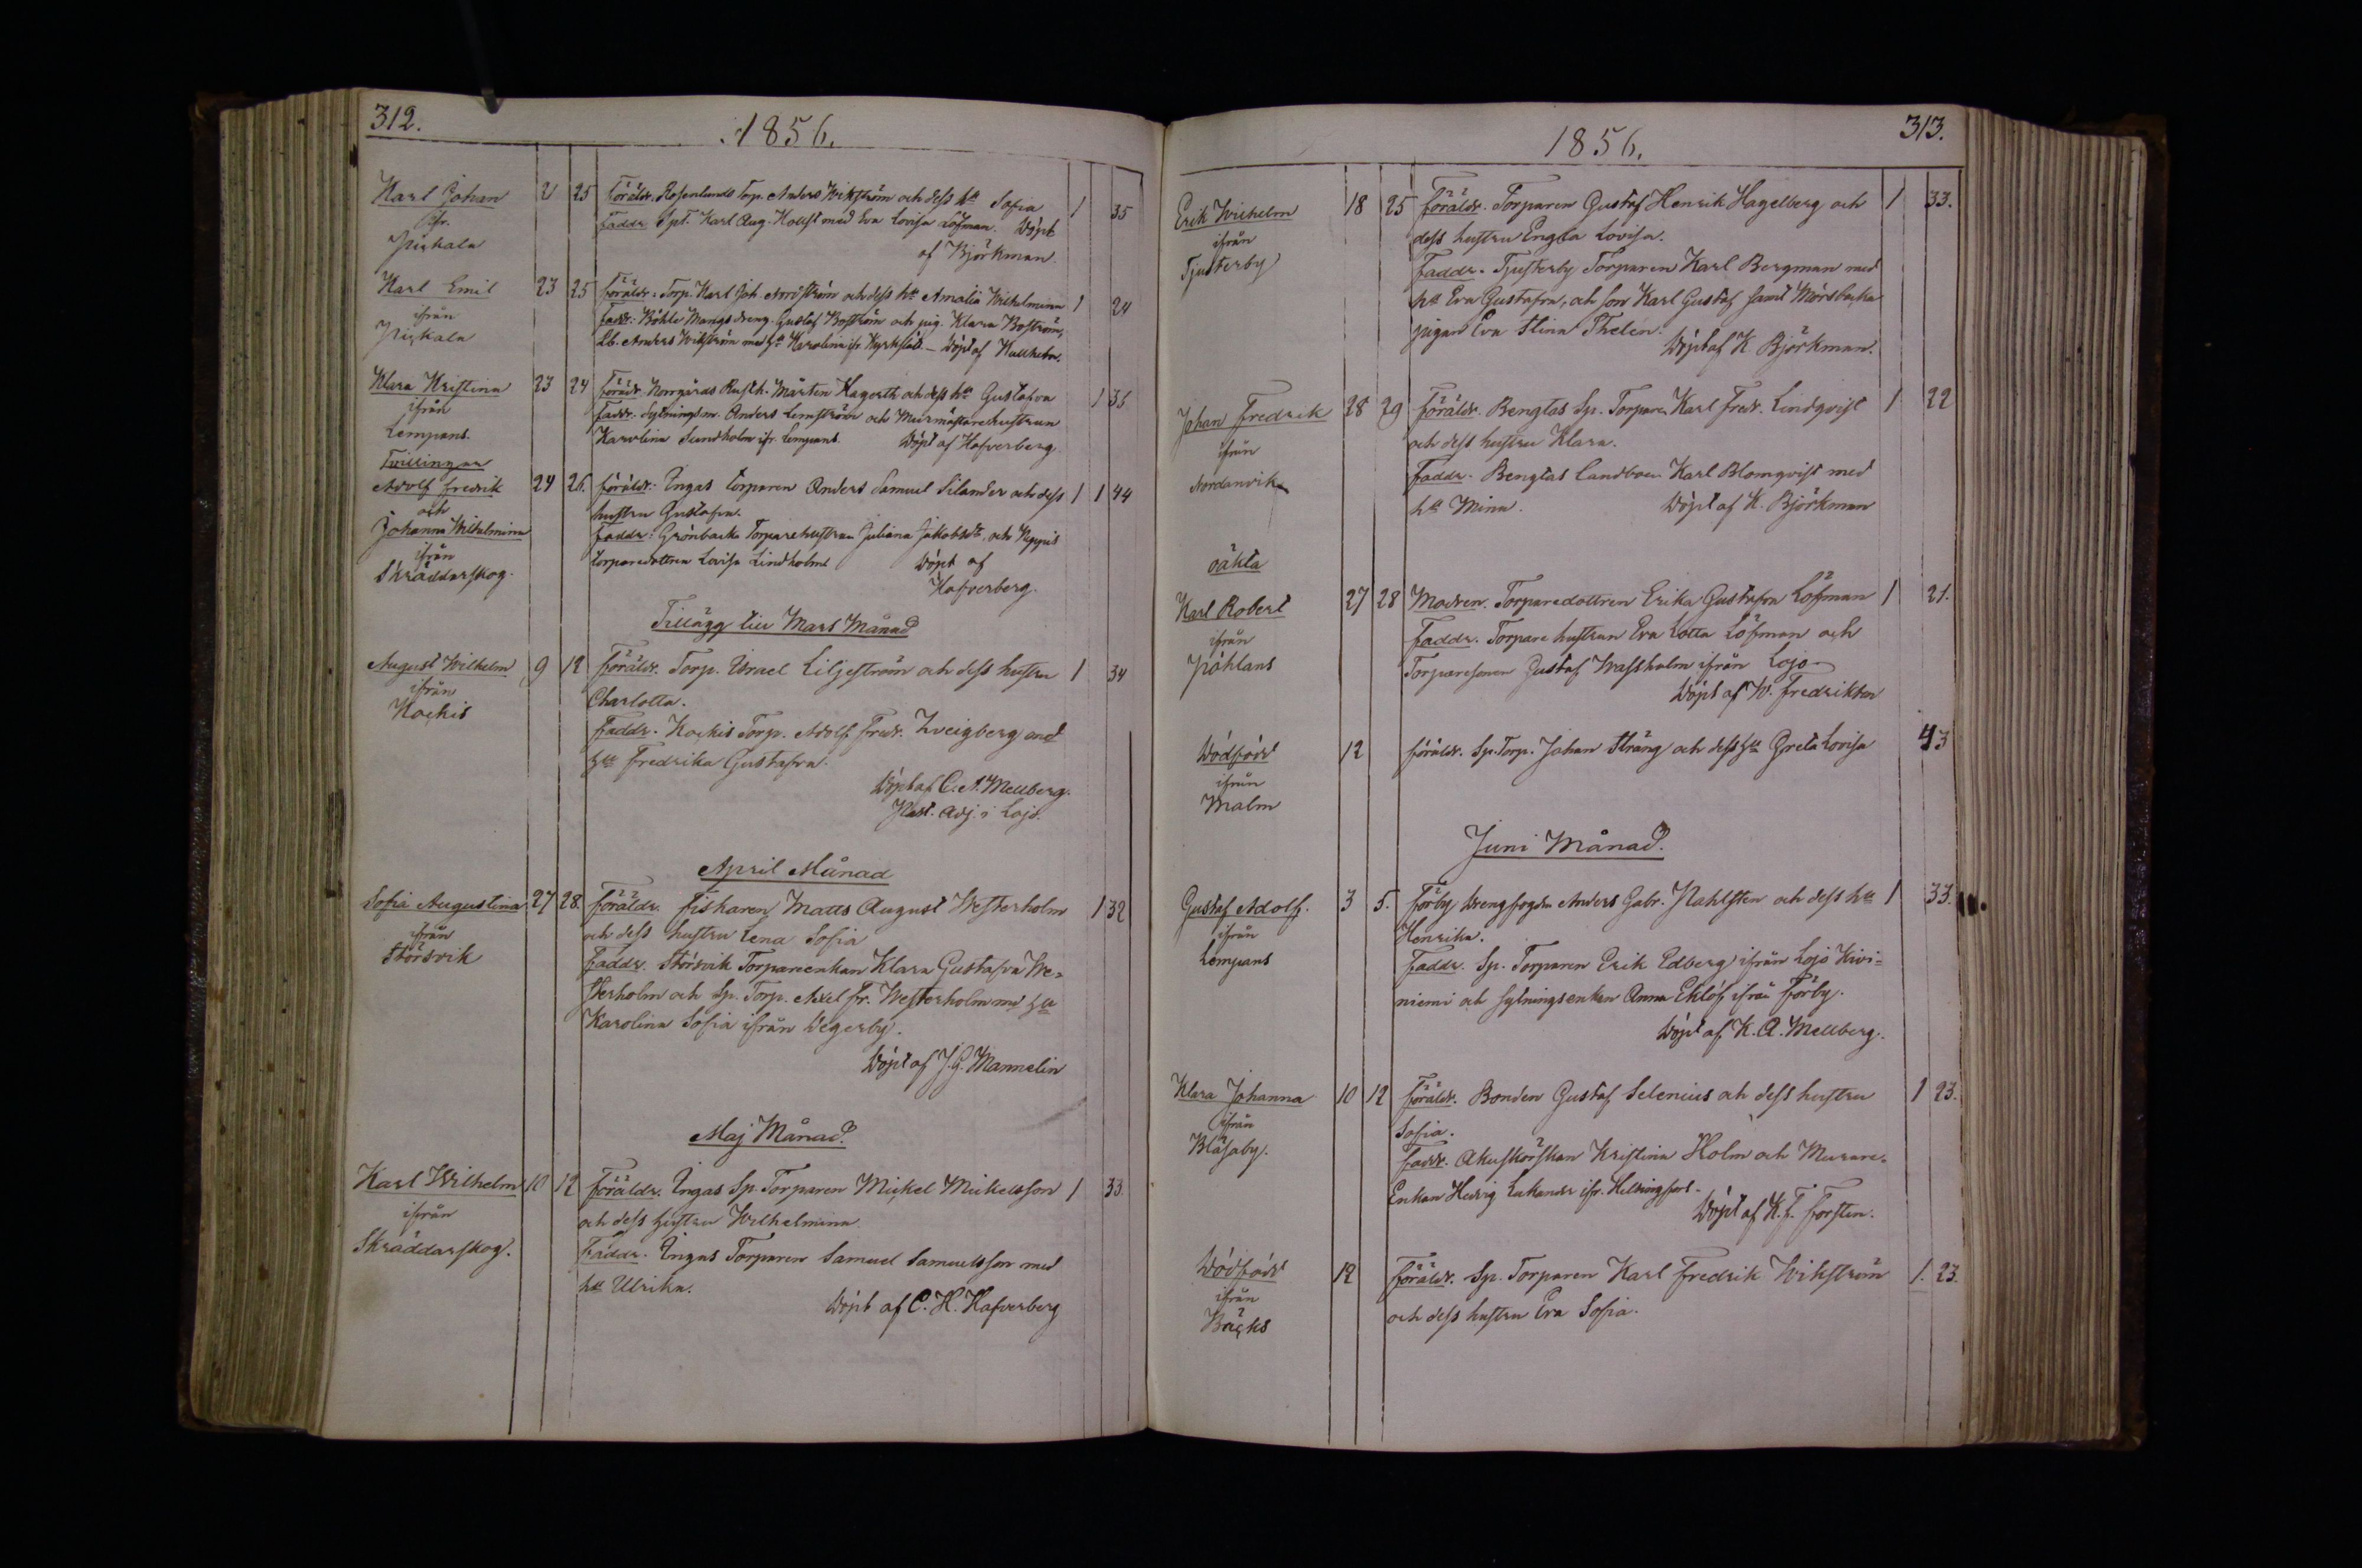 312.
1856.
Karl Johan 21 25 Föräldr. Rosenlunds Torp. Anders Wikström och dess h:u Sofia 1 35
ifr. Faddr. Spt. Karl Aug. Hollst med Eva Lovisa Löfman. Döpt
Pickala af Björkman.
Karl Emil 23 25 Föräldr: Torp. Karl Joh. Nordström och dess h:u Amalia Wilhelmina 1 24
ifrån Faddr: Böhle Mangs dreng Gustaf Boström och pig. Klara Boström,
Pickala Lb. Anders Wikström med h:u Karolina ifr. Kyrkslätt. — Döpt af
Klara Kristina 23 24 Föräldr. Norrgårds Rusth. Mårten Hagerth och dess h:u Gustafva 1 35
ifrån Faddr. Sytningsm. Anders Lemström och Murmästarehustrun
Lempans. Karolina Sundholm ifr. Lempans. Döpt af Hafverberg
Tvillingar
Adolf Fredrik 24 26. Föräldr: Ingas torparen Anders Samuel Silander och dess 1 1 44
och hustru Gustafva.
Johanna Wilhelmina Faddr: Grönbacka Torparehustrun Juliana Jakobsdr, och
ifrån torparedottren Lovisa Lindholm Döpt af
Skräddarskog. Hafverberg.
Tillägg till Mars Månad
August Wilhelm 9 12 Föräldr. Torp. Israel Liljeström och dess hustru 1 34
ifrån Charlotta.
Kockis Faddr. Kockis Torp. Adolf Fredr. Zveigberg med
h:u Fredrika Gustafva.
Döpt af C. A. Mellberg.
Past. Adj. i Lojo.
April Månad
Sofia Augustina 27 28. Föräldr. Fiskaren Matts August Westerholm 1 32
ifrån och dess hustru Lena Sofia
Störsvik Faddr. Störsvik Torpareenkan Klara Gustafva We=
sterholm och Sp. Torp. Axel Fr. Westerholm med h:u
Karolina Sofia ifrån Degerby.
Döpt af J. G. Mannelin
Maj Månad.
Karl Wilhelm 10 12 Föräldr. Ingas Sp. Torparen Mickel Mickelsson 1 33.
ifrån och dess hustru Wilhelmina
Skräddarskog. Faddr. Ingas Torparen Samuel Samuelsson med
h:u Ulrika.
Döpt af C. H. Hafverberg
1856.
313.
Erik Wilhelm 18 25 Föräldr. Torparen Gustaf Henrik Hagelberg och 1 33.
ifrån dess hustru Engla Lovisa.
Tjusterby Faddr. Tjusterby Torparen Karl Bergman med
h:u Eva Gustafva, och son Karl Gustaf samt Mörsbacka
pigan Eva Stina Thelén.
Döpt af K. Björkman.
Johan Fredrik 28 29 Föräldr. Bengtas Sp. Torparen Karl Fredr. Lindqvist 1 22
ifrån och dess hustru Klara.
Nordanvik Faddr. Bengtas Landboen Karl Blomqvist med
h:u Mina. Döpt af K. Björkman
oäkta
Karl Robert 27 28 Modren. Torparedottren Erika Gustafva Löfman 1 21.
ifrån Faddr. Torpare hustrun Eva Lotta Löfman och
Påhlans Torparesonen Gustaf Wassholm ifrån Lojo
Döpt af W. Fredrikson
Dödfödt 12 Föräldr. Sp. Torp. Johan Sträng och dess h:u Greta Lovisa 43
ifrån
Malm
Juni Månad.
Gustaf Adolf. 3 5. Förby drengfogden Anders Gabr. Nahlsten och dess h:u 1 33.
ifrån Henrika.
Lempans Faddr. Sp. Torparen Erik Edberg ifrån Lojo Kivi=
niemi och sytningsenkan Anna Eklöf ifrån Förby.
Döpt af K. A. Mellberg.
Klara Johanna 10 12 Föräldr. Bonden Gustaf Selenius och dess hustru 1 23.
ifrån Sofia.
Blåsaby. Faddr. Akuskörskan Kristina Holm och Murare=
Enkan Hedvig Lukander ifr. Helsingfors.
Döpt af K. F. Forsten.
Dödfödt 12 Föräldr. Sp. Torparen Karl Fredrik Wikström 1. 23.
ifrån och dess hustru Eva Sofia.
Bäcks